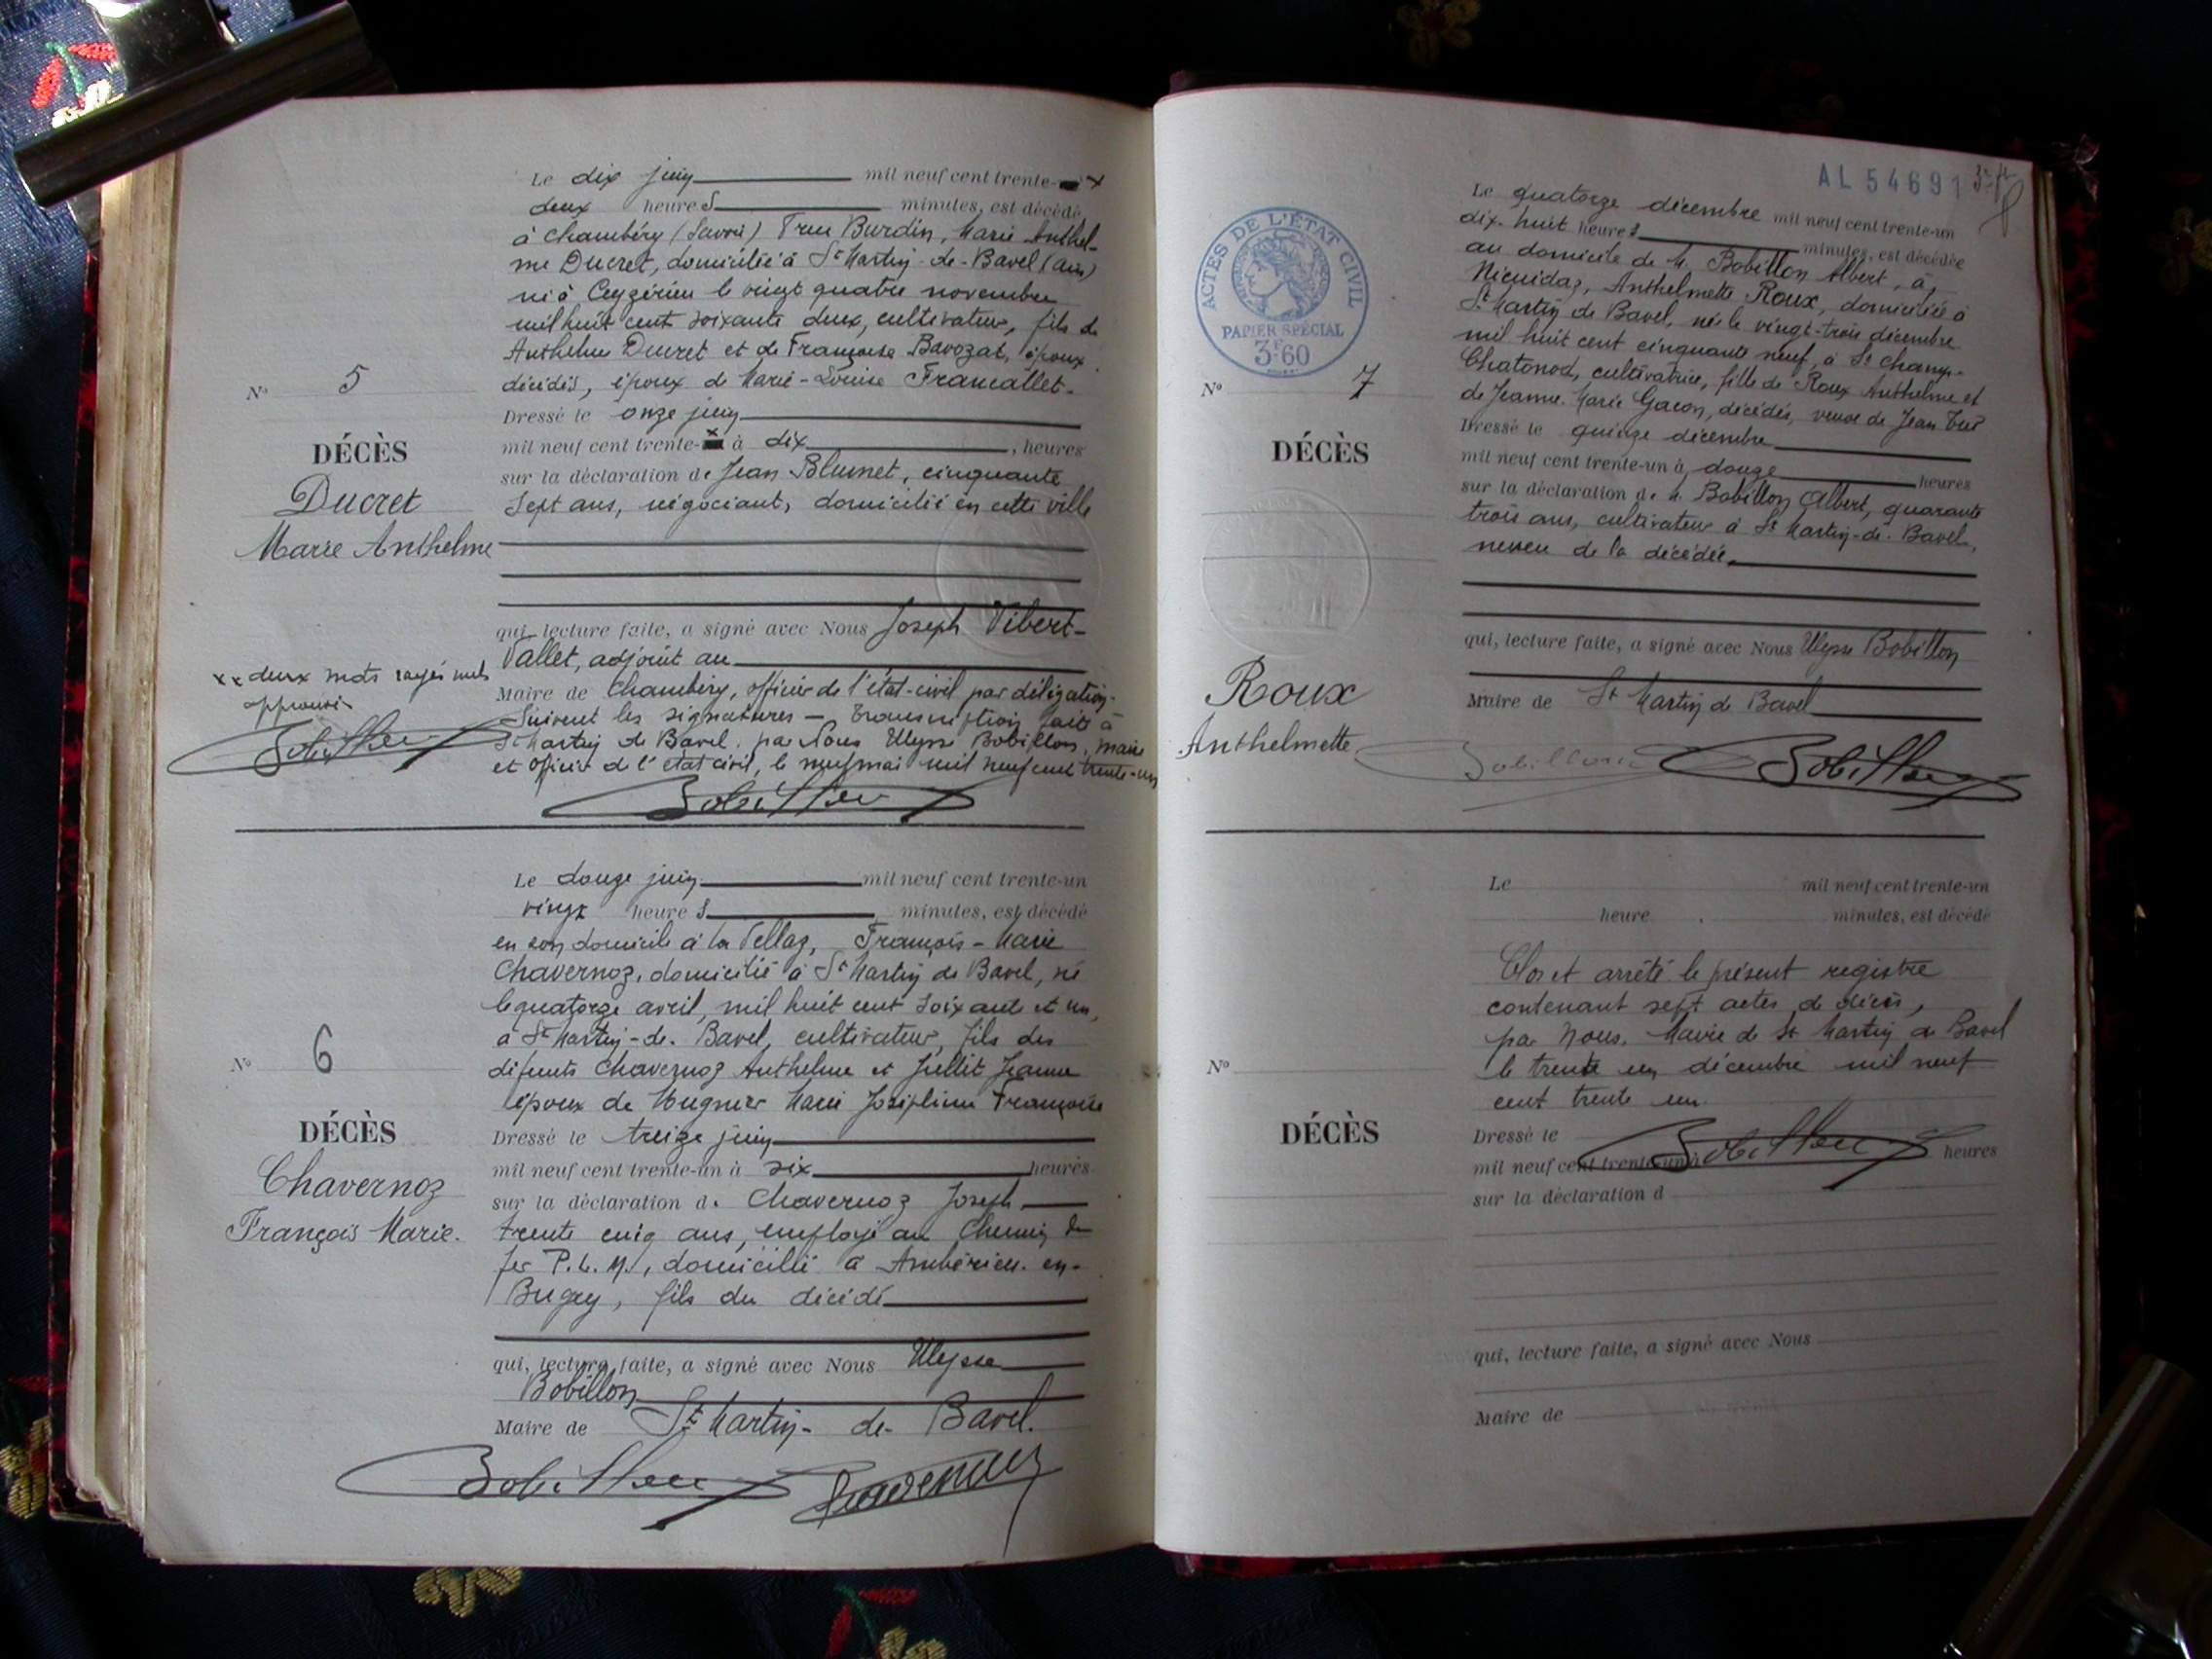 Le dix juin mil neuf cent trente- x
deux heures minutes, est décédé
à Chambéry (Savoie) 7 rue Burdin, Marie Anthel-
me Ducret, domicilié à St Martin-de-Bavel (Ain)
né à Ceyzérieu le vingt quatre novembre
mil huit cent soixante deux, cultivateur, fils de
Anthelme Ducret et de Françoise Bavozat, époux
décédés, époux de Marie-Louise Francallet.
No 5
Dressé le onze juin
mil neuf cent trente- x à dix, heures
DÉCÈS
sur la déclaration de Jean Blumet, cinquante
Ducret
sept ans, négociant, domicilié en cette ville
Marie Anthelme
qui, lecture faite, a signé avec Nous Joseph Vibert-
Vallet, adjoint au
xx deux mots rayés nuls
approuvés
Maire de Chambéry, officier de l'état-civil par délégation.
Suivent les signatures - Transcription faite à
Bobillon
St Martin de Bavel par Nous Ulysse Bobillon, maire
et officier de l'état civil, le mil neuf cent trente-un
Bobillon
Le douze juin mil neuf cent trente-un
vingt heures minutes, est décédé
en son domicile à la Vellaz, François-Marie
Chavernoz, domicilié à St Martin de Bavel, né
le quatorze avril, mil huit cent soixante et un,
à St Martin-de-Bavel, cultivateur, fils des
No 6
défunts Chavernoz Anthelme et Juillet Jeanne
époux de Mugnier Marie Joséphine Françoise
DÉCÈS
Dressé le treize juin
mil neuf cent trente-un à six heures
Chavernoz
sur la déclaration de Chavernoz Joseph,
François Marie.
trente cinq ans, employé au Chemin de
fer P.L.M., domicilié à Ambérieu-en-
Bugey, fils du décédé
qui, lecture faite, a signé avec Nous Ulysse
Bobillon
Maire de St Martin-de-Bavel.
Bobillon Chavernoz
AL 54691
ACTES DE L'ÉTAT CIVIL
PAPIER SPÉCIAL
3F60
Le quatorze décembre mil neuf cent trente-un
dix-huit heures minutes, est décédée
au domicile de M. Bobillon Albert, à
Niemidaz, Anthelmette Roux, domiciliée à
St Martin de Bavel, née le vingt-trois décembre
mil huit cent cinquante neuf, à St Champ-
Chatonod, cultivatrice, fille de Roux Anthelme et
No 7
de Jeanne-Marie Gacon, décédés, veuve de Jean
DÉCÈS
Dressé le quinze décembre
mil neuf cent trente-un à douze heures
sur la déclaration de M. Bobillon Albert, quarante
trois ans, cultivateur à St Martin-de-Bavel,
neveu de la décédée,
qui, lecture faite, a signé avec Nous Ulysse Bobillon
Roux
Maire de St Martin de Bavel
Anthelmette
Bobillon Bobillon
Le mil neuf cent trente-un
heure minutes, est décédé
Clos et arrêté le présent registre
contenant sept actes de décès,
par Nous, Maire de St Martin de Bavel
No
le trente un décembre mil neuf
cent trente un.
DÉCÈS
Dressé le
Bobillon
mil neuf cent trente-un à heures
sur la déclaration d
qui, lecture faite, a signé avec Nous
Maire de